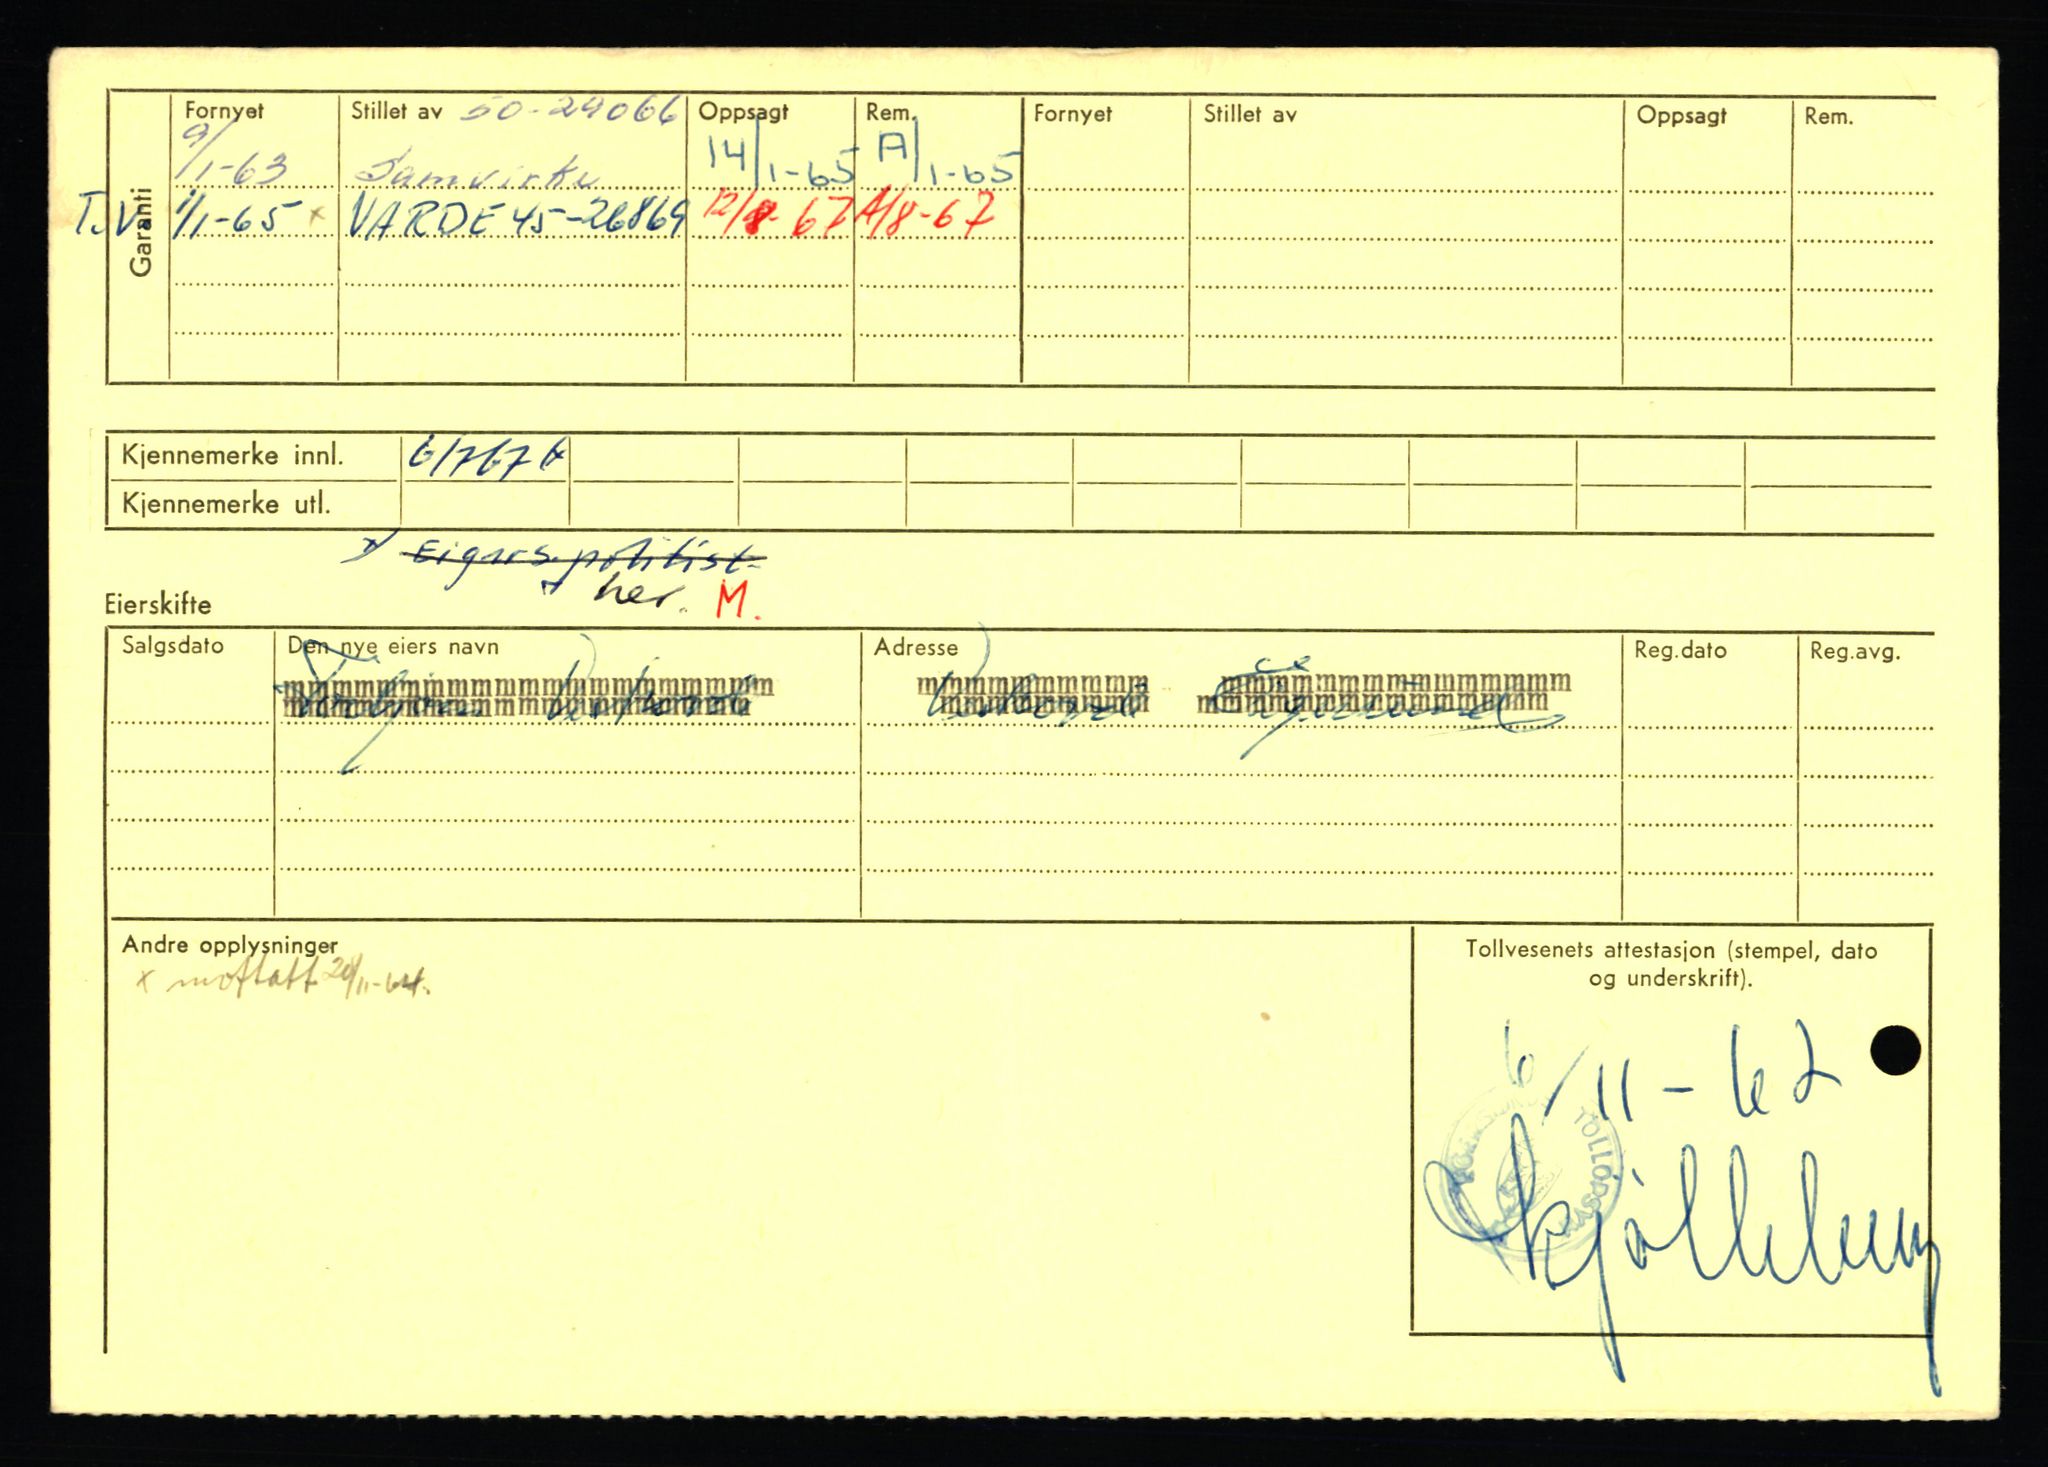 Garanti
Fornyet Stillet av 50-29066 Oppsagt Rem. Fornyet Stillet av Oppsagt Rem.
9/1-63 Samvirke 14/1-65 A/1-65
T.V. 1/1-65 x VARDE 45-26869 12/8-67 A/8-67
Kjennemerke innl. 6/767
Kjennemerke utl.
x) Eigars politist.
her. M.
Eierskifte
Salgsdato Den nye eiers navn Adresse Reg.dato Reg.avg.
Andre opplysninger
x mottatt 20/11-64.
Tollvesenets attestasjon (stempel, dato
og underskrift).
6/11-62
TOLLODS